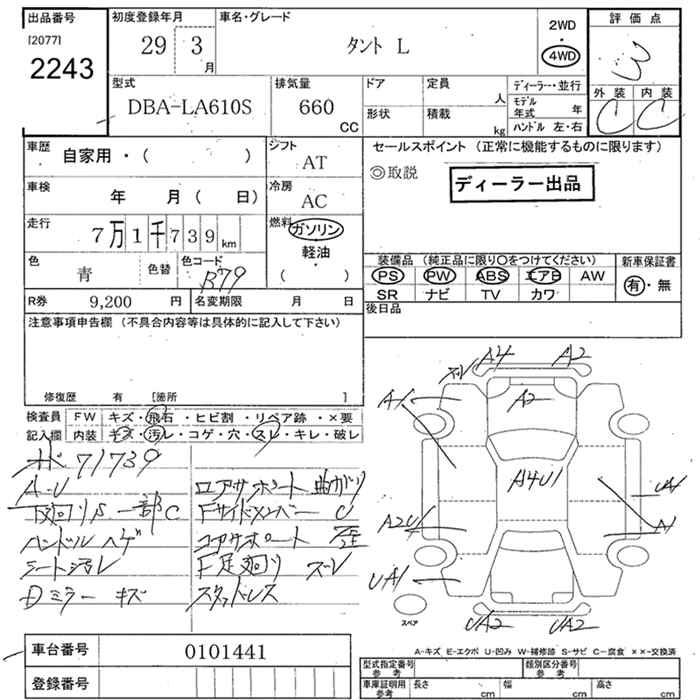 出品番号
[2077]
2243
初度登録年月
29 3 月
車名・グレード
タント L
2WD
・
4WD
評価点
3
外装 内装
C C
型式
DBA-LA610S
排気量
660
CC
ドア
形状
定員
人
積載
kg
ディーラー・並行
モデル年式 年
ハンドル 左・右
車歴
自家用・( )
シフト
AT
セールスポイント (正常に機能するものに限ります)
◎取説
ディーラー出品
車検
年 月 ( 日)
冷房
AC
走行
7万1千739km
燃料
ガソリン
軽油
・
( )
色
青
色替
色コード
B79
装備品 (純正品に限り○をつけてください)
PS PW ABS エアB AW
SR ナビ TV カワ
新車保証書
有・無
R券 9,200 円
名変期限 月 日
後日品
注意事項申告欄 (不具合内容等は具体的に記入して下さい)
修復歴 有 [箇所 ]
検査員 FW キズ・飛石・ヒビ割・リペア跡・×要
記入欄 内装 キズ・汚レ・コゲ・穴・スレ・キレ・破レ
71739
A-U
下廻りS 一部C
ハンドル ハゲ
シート汚レ
Dミラー キズ
ロアサポート 曲がり
Fサイドメンバー U
コアサポート 歪
F足廻り スレ
スタッドレス
A4 A2
A2
A-1
A4U1
A2U
UA1
UA2 UA2
スペア
A-キズ E-エクボ U-凹み W-補修跡 S-サビ C-腐食 ××-交換済
車台番号 0101441
登録番号
型式指定番号 参考
類別区分番号 参考
車庫証明用 参考
長さ cm 幅 cm 高さ cm